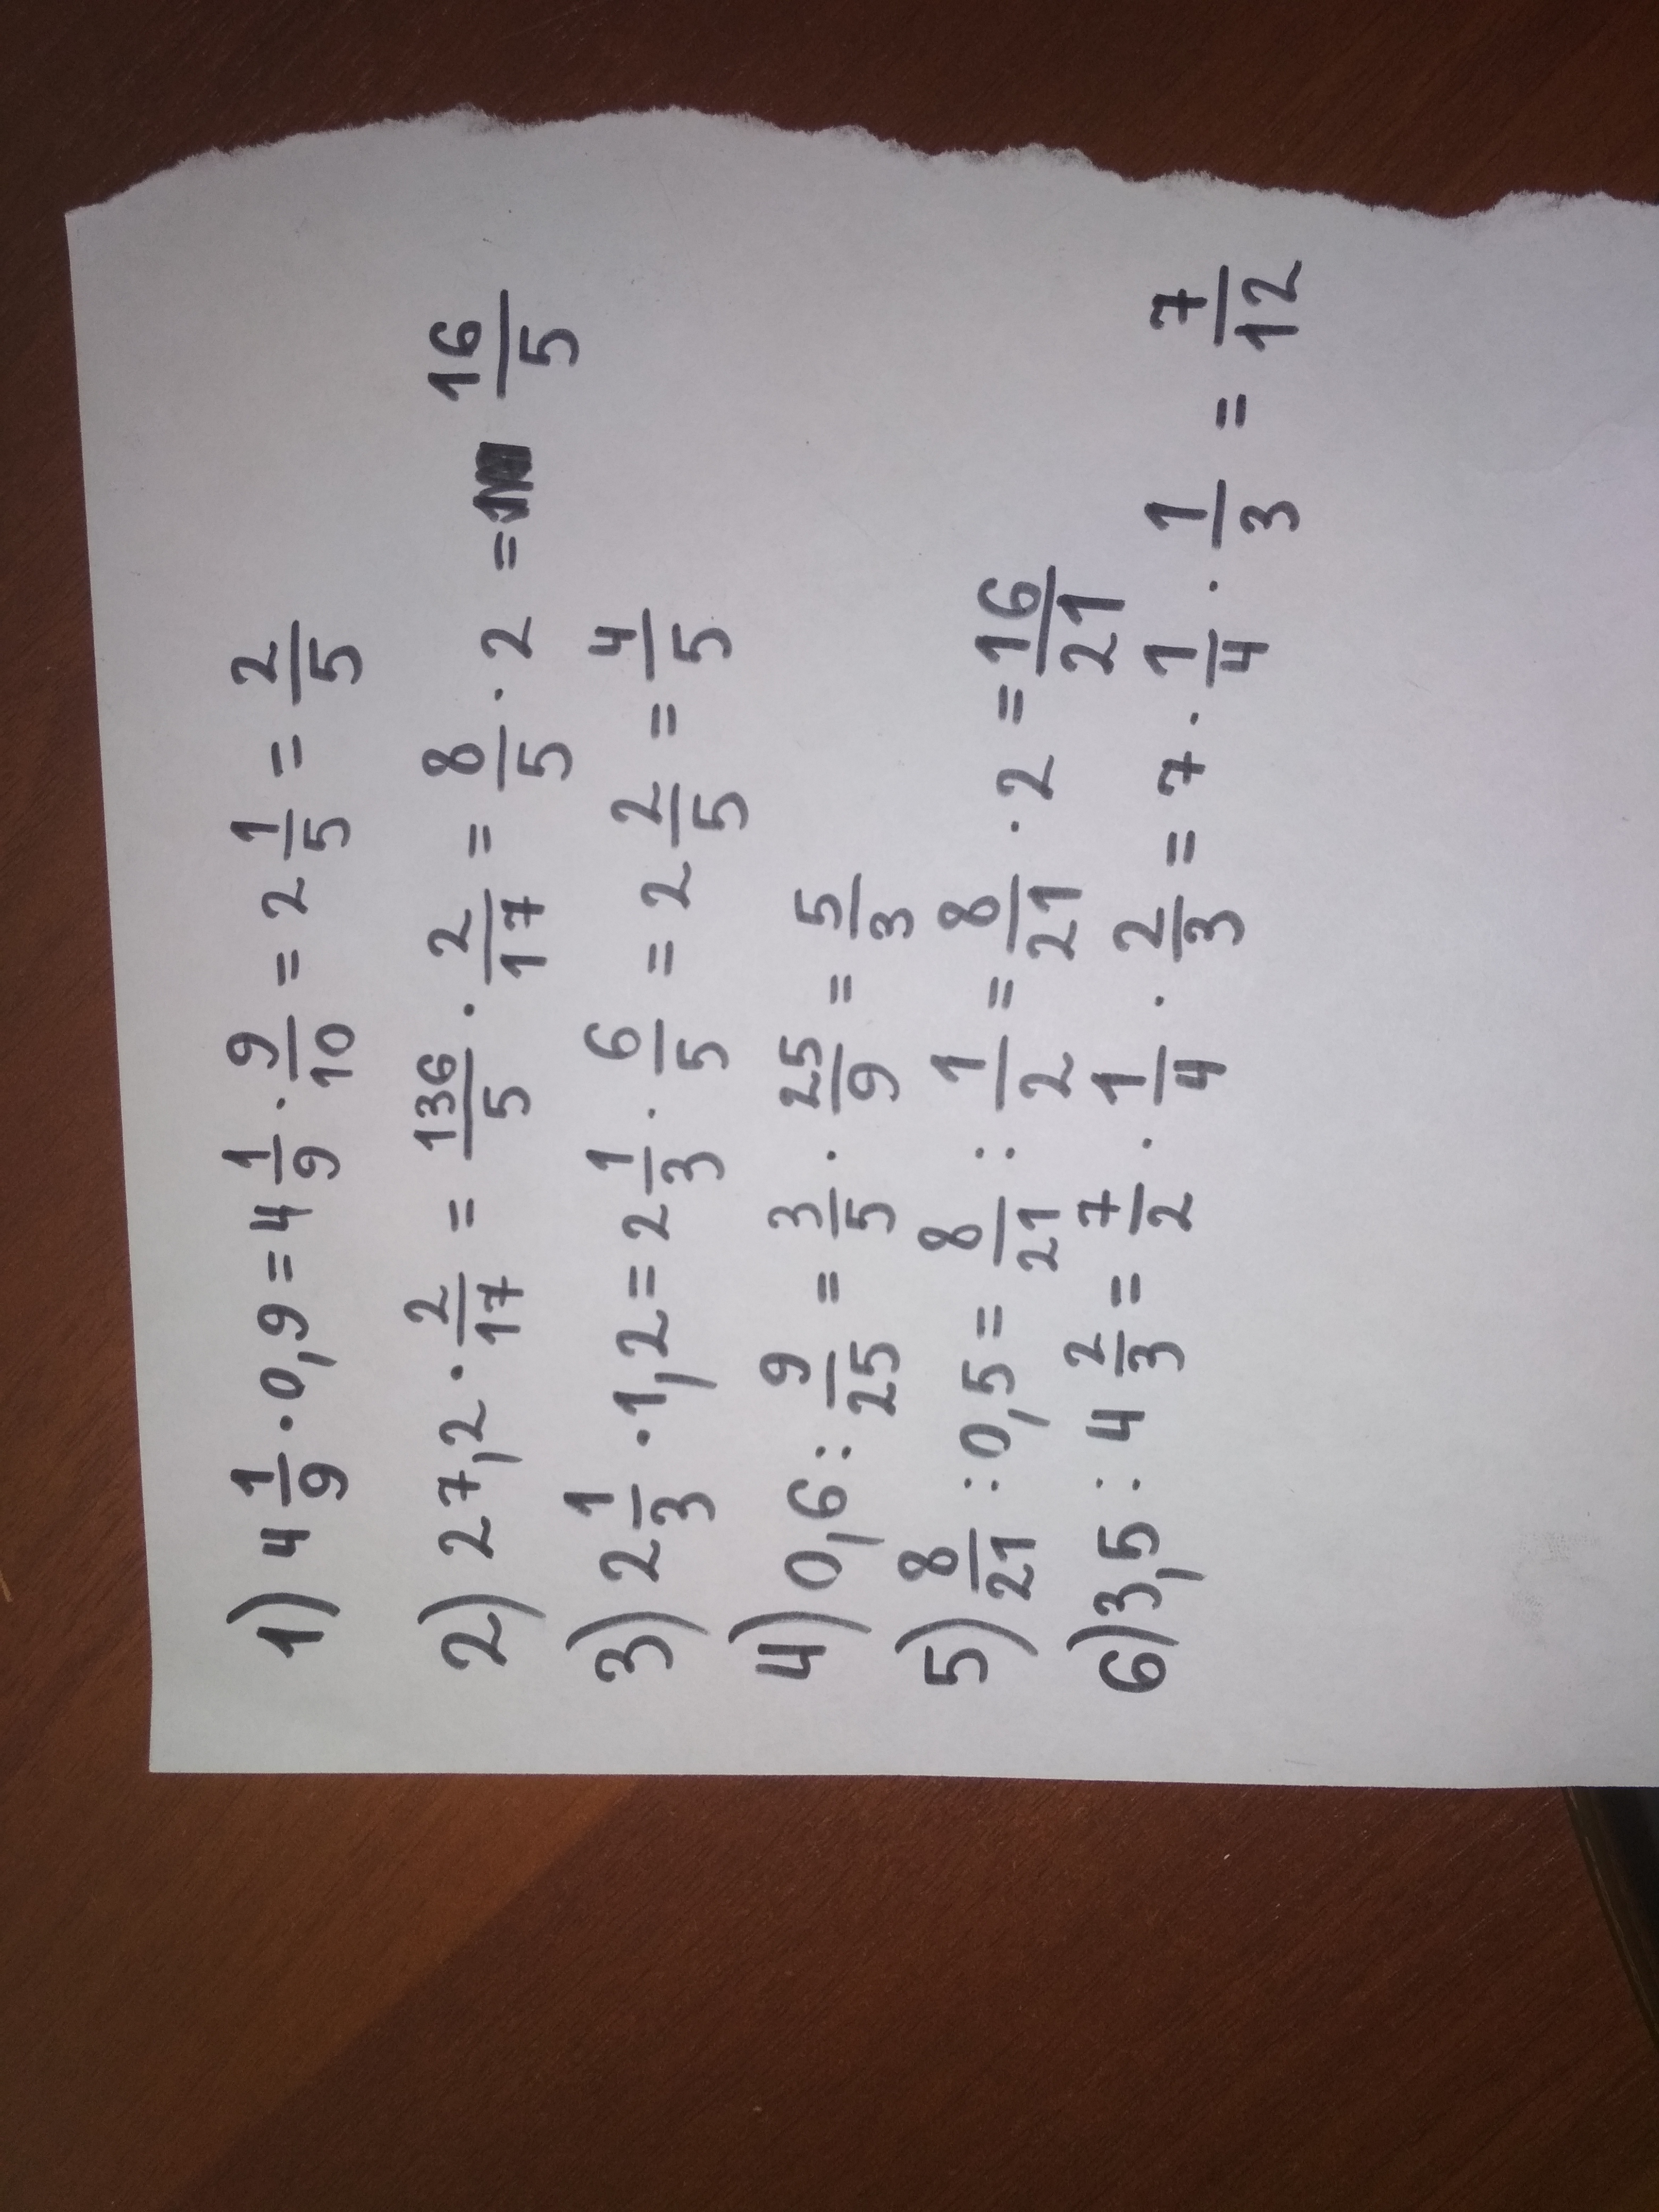 1) 4 1/9 · 0,9 = 4 1/9 · 9/10 = 2 1/5 = 2/5
2) 27,2 · 2/17 = 136/5 · 2/17 = 8/5 · 2 = 16/5
3) 2 1/3 · 1,2 = 2 1/3 · 6/5 = 2 2/5 = 4/5
4) 0,6 : 9/25 = 3/5 · 25/9 = 5/3
5) 8/21 : 0,5 = 8/21 : 1/2 = 8/21 · 2 = 16/21
6) 3,5 : 4 2/3 = 7/2 · 1/4 · 2/3 = 7 · 1/4 · 1/3 = 7/12